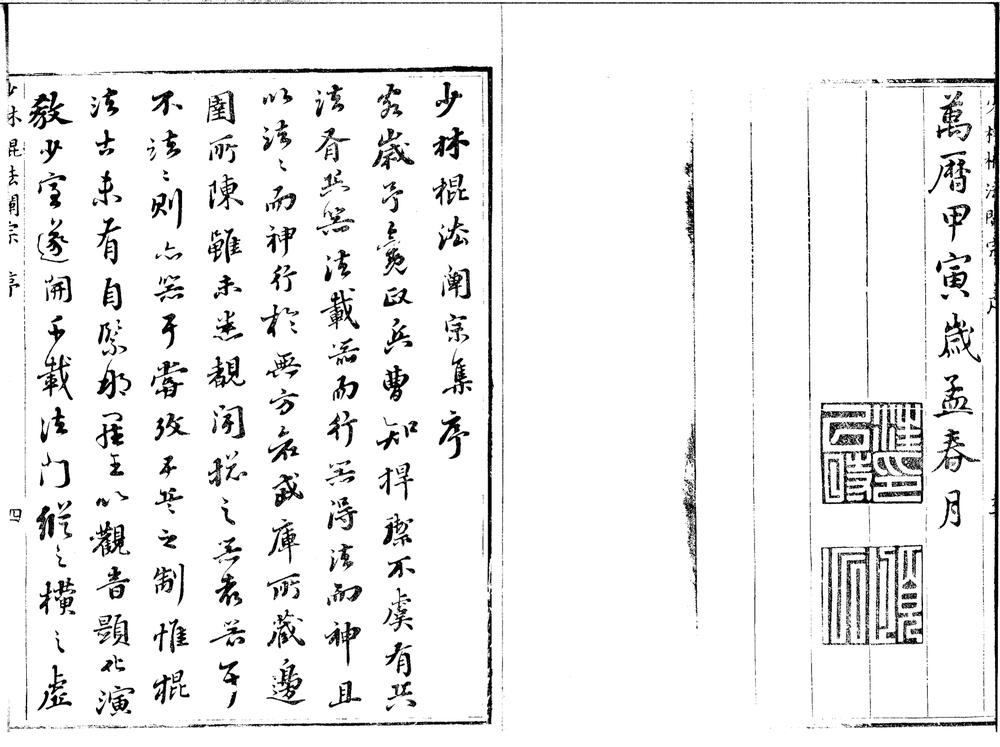 萬曆甲寅歲孟春月
少林棍法闡宗 序
四
少林棍法闡宗集序
歲予政兵曹知捍禦不虞有兵
法有兵器法載器而行器得法而神且
以法〻而神行於無方若武庫所藏邊
圉所陳雖未悉覩聞總之器器乎
不法〻則亡器乎嘗攷五兵之制惟棍
法古未有自緊那羅王以觀音顯化演
教少室遂開千載法门縱之橫之虛